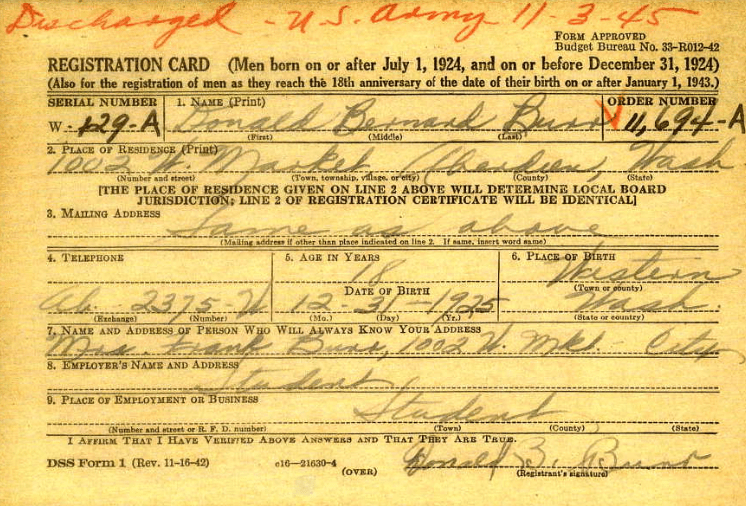 Discharged - U.S. Army 11-3-45
FORM APPROVED
Budget Bureau No. 33-R012-42
REGISTRATION CARD (Men born on or after July 1, 1924, and on or before December 31, 1924)
(Also for the registration of men as they reach the 18th anniversary of the date of their birth on or after January 1, 1943.)
SERIAL NUMBER 1. NAME (Print) ORDER NUMBER
W-129-A Donald Bernard 11,694-A
(First) (Middle) (Last)
2. PLACE OF RESIDENCE (Print)
1002 W. Market Wash
(Number and street) (Town, township, village, or city) (County) (State)
[THE PLACE OF RESIDENCE GIVEN ON LINE 2 ABOVE WILL DETERMINE LOCAL BOARD
JURISDICTION; LINE 2 OF REGISTRATION CERTIFICATE WILL BE IDENTICAL]
3. MAILING ADDRESS
Same as above
(Mailing address if other than place indicated on line 2. If same, insert word same)
4. TELEPHONE 5. AGE IN YEARS 6. PLACE OF BIRTH
18 Western
DATE OF BIRTH (Town or county)
Ab. 2375-W 12-31-1925 Wash.
(Exchange) (Number) (Mo.) (Day) (Yr.) (State or country)
7. NAME AND ADDRESS OF PERSON WHO WILL ALWAYS KNOW YOUR ADDRESS
Mrs. Frank 1002 W. Mkt. - City
8. EMPLOYER'S NAME AND ADDRESS
Student
9. PLACE OF EMPLOYMENT OR BUSINESS
Student
(Number and street or R. F. D. number) (Town) (County) (State)
I AFFIRM THAT I HAVE VERIFIED ABOVE ANSWERS AND THAT THEY ARE TRUE.
DSS Form 1 (Rev. 11-16-42) c16-21630-4 Donald B.
(OVER) (Registrant's signature)